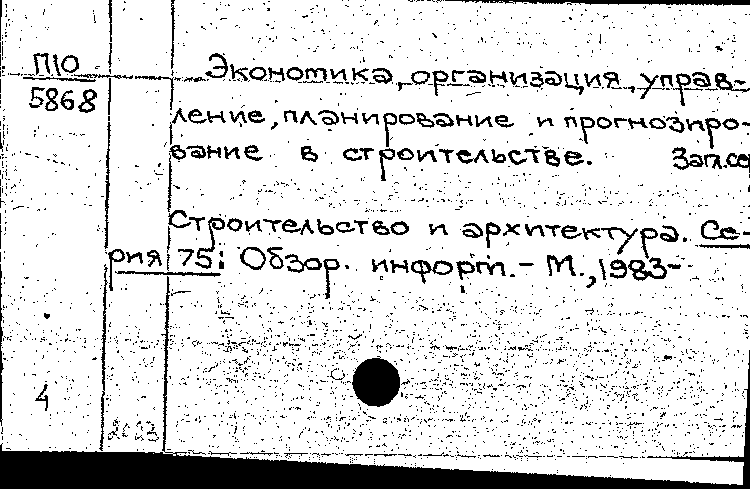 П10
5868
Экономика, организация, управ-
ление, планирование и прогнозиро-
вание в строительстве. Загл. се
Строительство и архитектура. Се-
рия 75: Обзор. информ. - М., 1983-
4